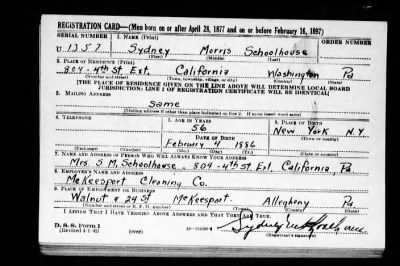 REGISTRATION CARD—(Men born on or after April 28, 1877 and on or before February 16, 1897)
SERIAL NUMBER 1. NAME (Print) ORDER NUMBER
U 1357 Sydney Morris Schoolhouse
(First) (Middle) (Last)
2. PLACE OF RESIDENCE (Print)
804-4th St Ext. California Washington Pa
(Number and street) (Town, township, village, or city) (County) (State)
[THE PLACE OF RESIDENCE GIVEN ON THE LINE ABOVE WILL DETERMINE LOCAL BOARD
JURISDICTION; LINE 2 OF REGISTRATION CERTIFICATE WILL BE IDENTICAL]
3. MAILING ADDRESS
Same
[Mailing address if other than place indicated on line 2. If same insert word same]
4. TELEPHONE 5. AGE IN YEARS 6. PLACE OF BIRTH
56
DATE OF BIRTH New York
(Town or county)
February 4 1886 N.Y.
(Exchange) (Number) (Mo.) (Day) (Yr.) (State or country)
7. NAME AND ADDRESS OF PERSON WHO WILL ALWAYS KNOW YOUR ADDRESS
Mrs S. M. Schoolhouse - 804-4th St Ext. California Pa
8. EMPLOYER'S NAME AND ADDRESS
McKeesport Cleaning Co.
9. PLACE OF EMPLOYMENT OR BUSINESS
Walnut & 24 St McKeesport. Allegheny Pa
(Number and street or R. F. D. number) (Town) (County) (State)
I AFFIRM THAT I HAVE VERIFIED ABOVE ANSWERS AND THAT THEY ARE TRUE.
D. S. S. Form 1
(Revised 4-1-42) (over)
(Registrant's signature)